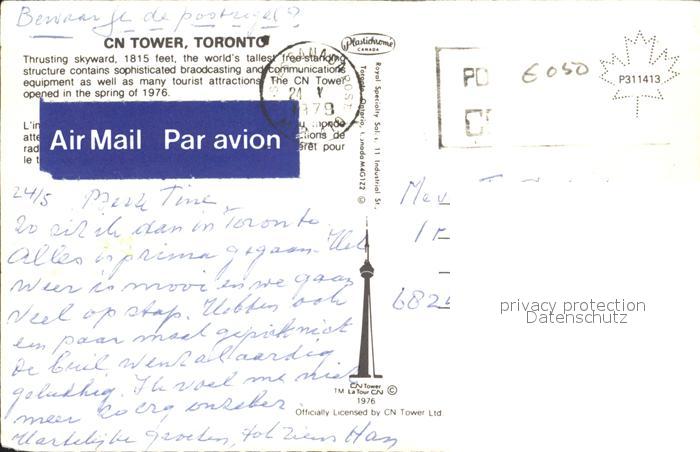 Bewaar je de postzegel?
CN TOWER, TORONTO
Thrusting skyward, 1815 feet, the world's tallest free-standing
structure contains sophisticated braodcasting and communications
equipment as well as many tourist attractions. The CN Tower
opened in the spring of 1976.
L'in
monde
atte
tions de
rad
érêt pour
le t
Air Mail Par avion
CANADA
POST
24 V
1979
Plastichrome
CANADA
Royal Speciality Sal 11 Industrial St.
Toronto, Ontario, Canada M4G1Z2 ©
PD
6050
P311413
24/5 Beste Tine
Zo zit ik dan in Toronto
Alles is prima gegaan. Het
weer is mooi en we gaan
veel op stap. Hebben ook
een paar maal gepicknickt
De bril went al aardig
gelukkig. Ik voel me niet
meer zo erg onzeker.
Hartelijke groeten, tot ziens Han
Mev
682
privacy protection
Datenschutz
CN Tower
TM La Tour CN ©
1976
Officially Licensed by CN Tower Ltd.